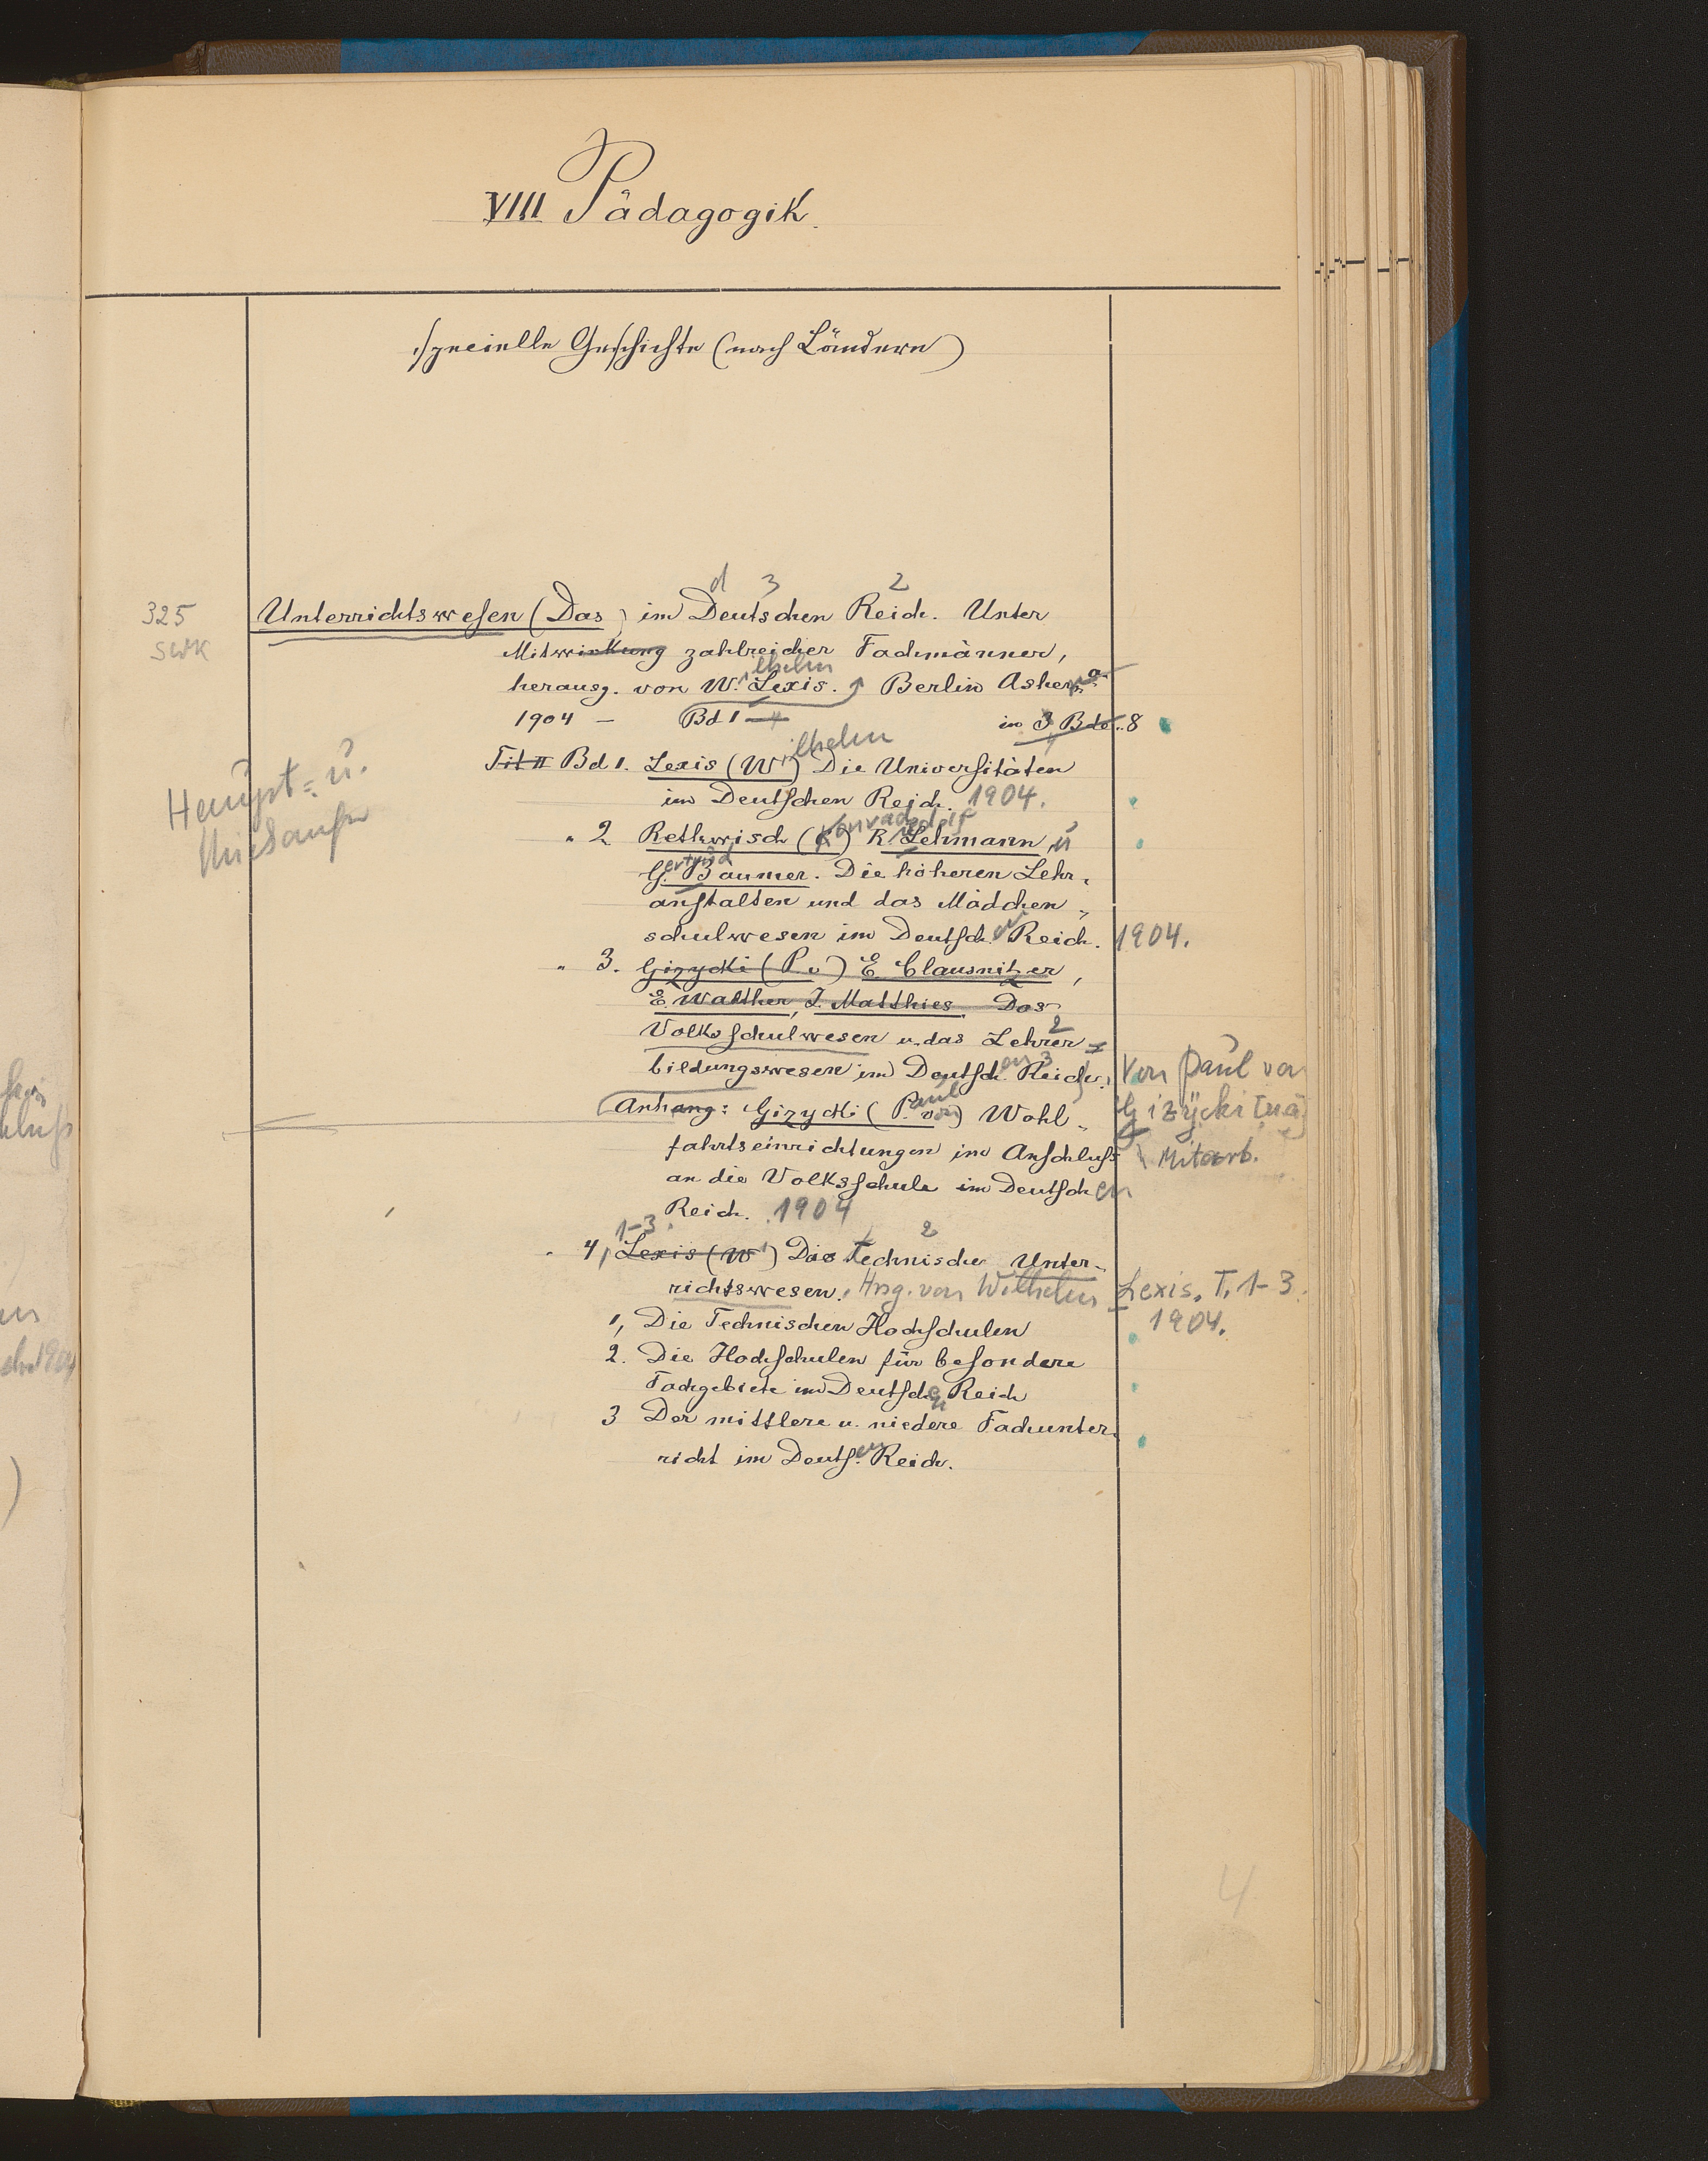 VIII Pädagogik.
specielle Geschichte (nach Ländern)
d 3 2
325 Unterrichtswesen (Das) im Deutschen Reich. Unter
SWK Mitwirkung zahlreicher Fachmänner,
herausg. von W.ilhelm Lexis. Berlin Asher
1904 – Bd 1 – 4 in 3 Bdn. 8
Haupt= u.
Tit II Bd 1. Lexis (Wilhelm) Die Universitäten
im Deutschen Reich. 1904.
" 2 Rethwisch (Konrad) Rudolf Lehmann u
Gertrud Baumer. Die höheren Lehr-
anstalten und das Mädchen-
schulwesen im Deutschen Reich. 1904.
" 3. Gizycki (P. v) E. Clausnitzer,
E. Walther, J. Matthies. Das
Volksschulwesen u. das Lehrer= 2
bildungswesen im Deutschen 3 Reich. Von Paul von
Anhang: Gizycki (Paul von) Wohl- Gizycki [u a]
fahrtseinrichtungen im Anschluss Mitarb.
an die Volksschule im Deutschen
Reich. 1904
1-3 2
" 4, Lexis (W) Das Technische Unter-
richtswesen. Hrsg. von Wilhelm Lexis. T. 1-3.
1904.
1, Die Technischen Hochschulen
2. Die Hochschulen für besondere
Fachgebiete im Deutschen Reich
3 Der mittlere u. niedere Fachunter-
richt im Deutschen Reich.
4